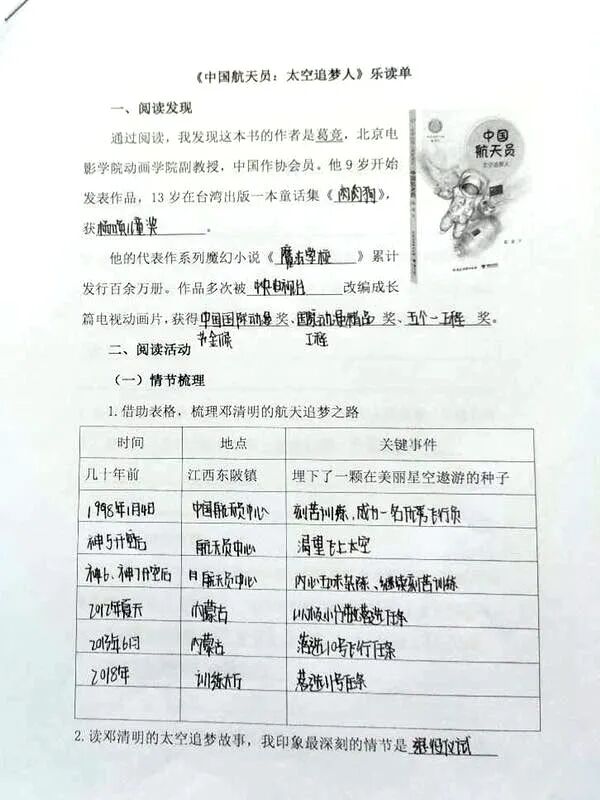 《中国航天员：太空追梦人》乐读单
一、阅读发现
通过阅读，我发现这本书的作者是葛竞，北京电
影学院动画学院副教授，中国作协会员。他9岁开始
发表作品，13岁在台湾出版一本童话集《肉肉狗》，
获杨唤儿童奖。
他的代表作系列魔幻小说《魔法学校》累计
发行百余万册。作品多次被中央电视台改编成长
篇电视动画片，获得中国国际动漫奖、国家动漫精品奖、五个一工程奖。
节金猴 工程
中国
航天员
太空追梦人
二、阅读活动
（一）情节梳理
1.借助表格，梳理邓清明的航天追梦之路
时间 地点 关键事件
几十年前 江西东陂镇 埋下了一颗在美丽星空遨游的种子
1998年1月4日 中国航天员中心 刻苦训练，成为一名优秀飞行员
神5升空后 航天员中心 渴望飞上太空
神6、神7升空后 航天员中心 内心五味杂陈、继续刻苦训练
2012年夏天 内蒙古 落选任务
2013年6月 内蒙古 落选10号飞行任务
2018年 训练大厅 落选11号任务
2.读邓清明的太空追梦故事，我印象最深刻的情节是